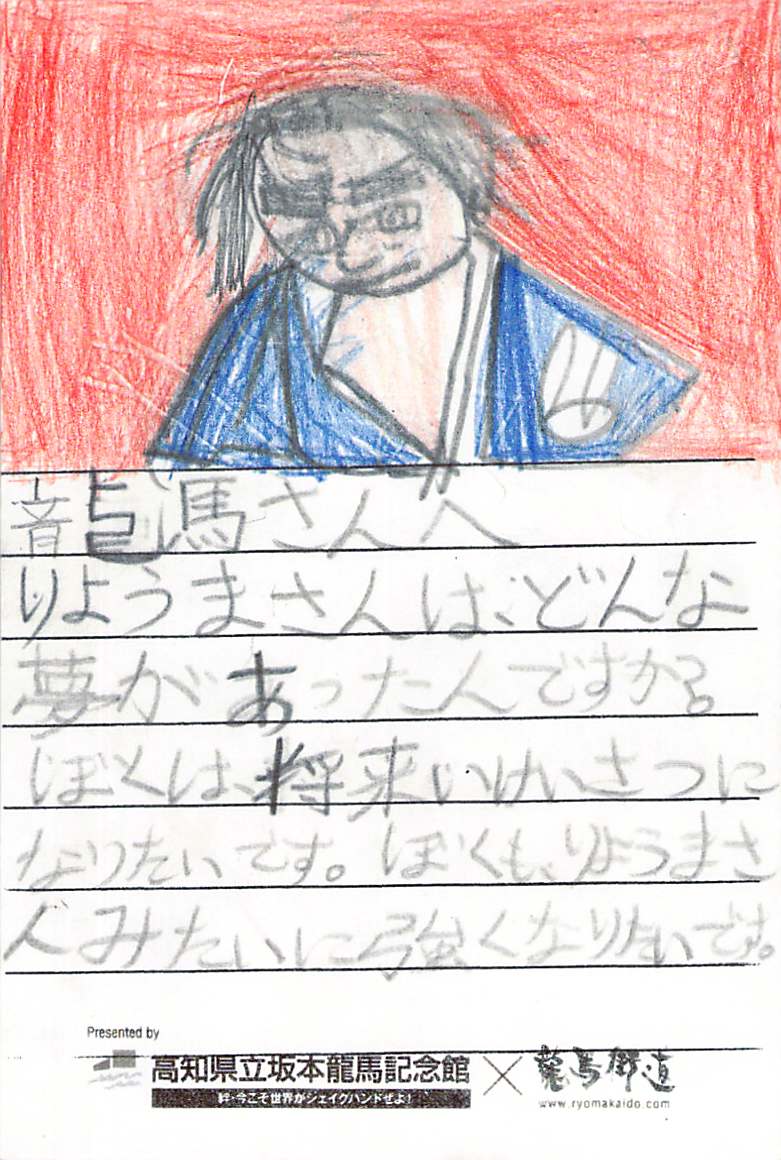 龍馬さんへ
りょうまさんは、どんな
夢があったんですか?
ぼくは、将来いけいさつに
なりたいです。ぼくも、りょうまさ
んみたいに強くなりたいです。
Presented by
高知県立坂本龍馬記念館×龍馬街道
絆・今こそ世界がシェイクハンドぜよ!
www.ryomakaido.com